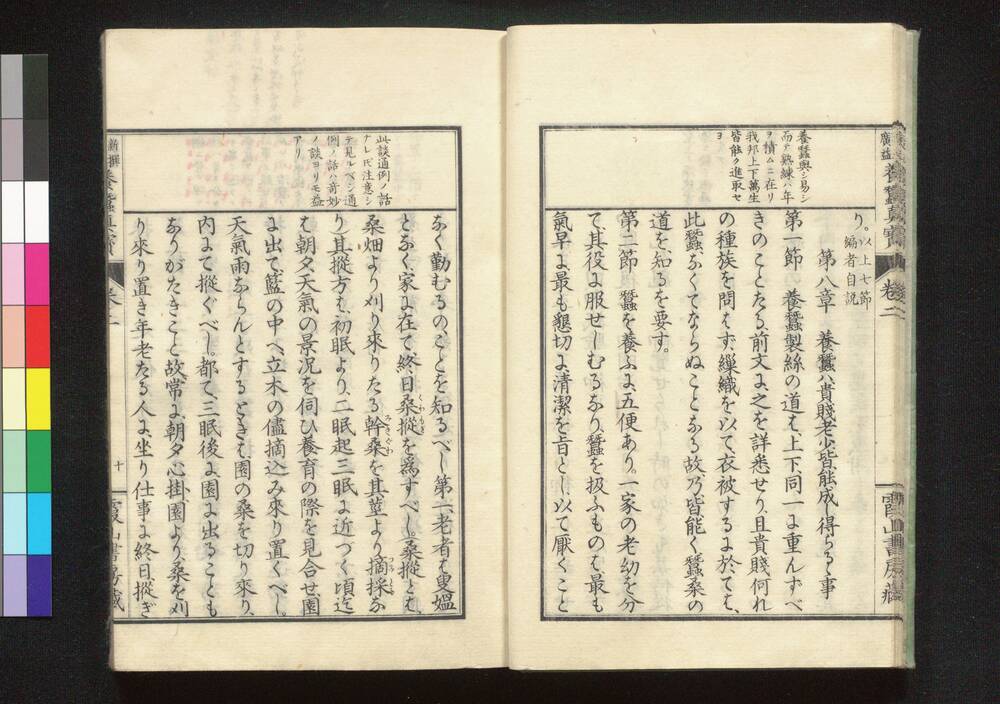 廣益養蠶真寶 卷二
養蠶與シ易シ
而テ熟練ハ年
ヲ積ムニ在リ
我邦上下萬生
皆能ク進取セ
ヨ
り。以上七節
編者自説
第八章 養蠶ハ貴賤老少皆能成し得らるゝ事
第一節 養蠶製絲の道は上下同一に重んずべ
きのことたる前文に之を詳悉せり且貴賤何れ
の種族を問はず繰織を以て衣被するに於ては、
此蠶なくてならぬことなる故乃皆能く蠶桑の
道を知るを要す。
第二節 蠶を養ふに五便あり。一家の老幼を分
て、其役に服せしむるなり、蠶を扱ふものは最も
氣早に最も懇切に清潔を旨とし、以て厭くこと
霞山書房藏
此談通例ノ話
ナレ𪜈注意シ
テ見ルベシ通
例ノ話ハ奇妙
ノ談ヨリモ益
アリ
なく勤むるのことを知るべし第一、老者は東媼
となく、家に在て終日桑摐を爲すべし。桑摐とは、
桑畑より刈り來りたる幹桑を其莖より摘採な
り)其摐方は、初眠より、二眠起三眠に近づく頃迄
は朝夕天氣の景況を伺ひ養育の際を見合せ、園
に出て、籃の中へ立木の儘摘込み來り置くべし。
天氣雨ならんとするときは園の桑を切り來り、
内にて摐ぐべし。都て三眠後に園に出ることも
なりがたきこと故常に朝夕心掛、園より桑を刈
り來り置き年老たる人に坐り仕事に終日摐ぎ
新撰養蠶真寶 卷二
十
霞山書房藏